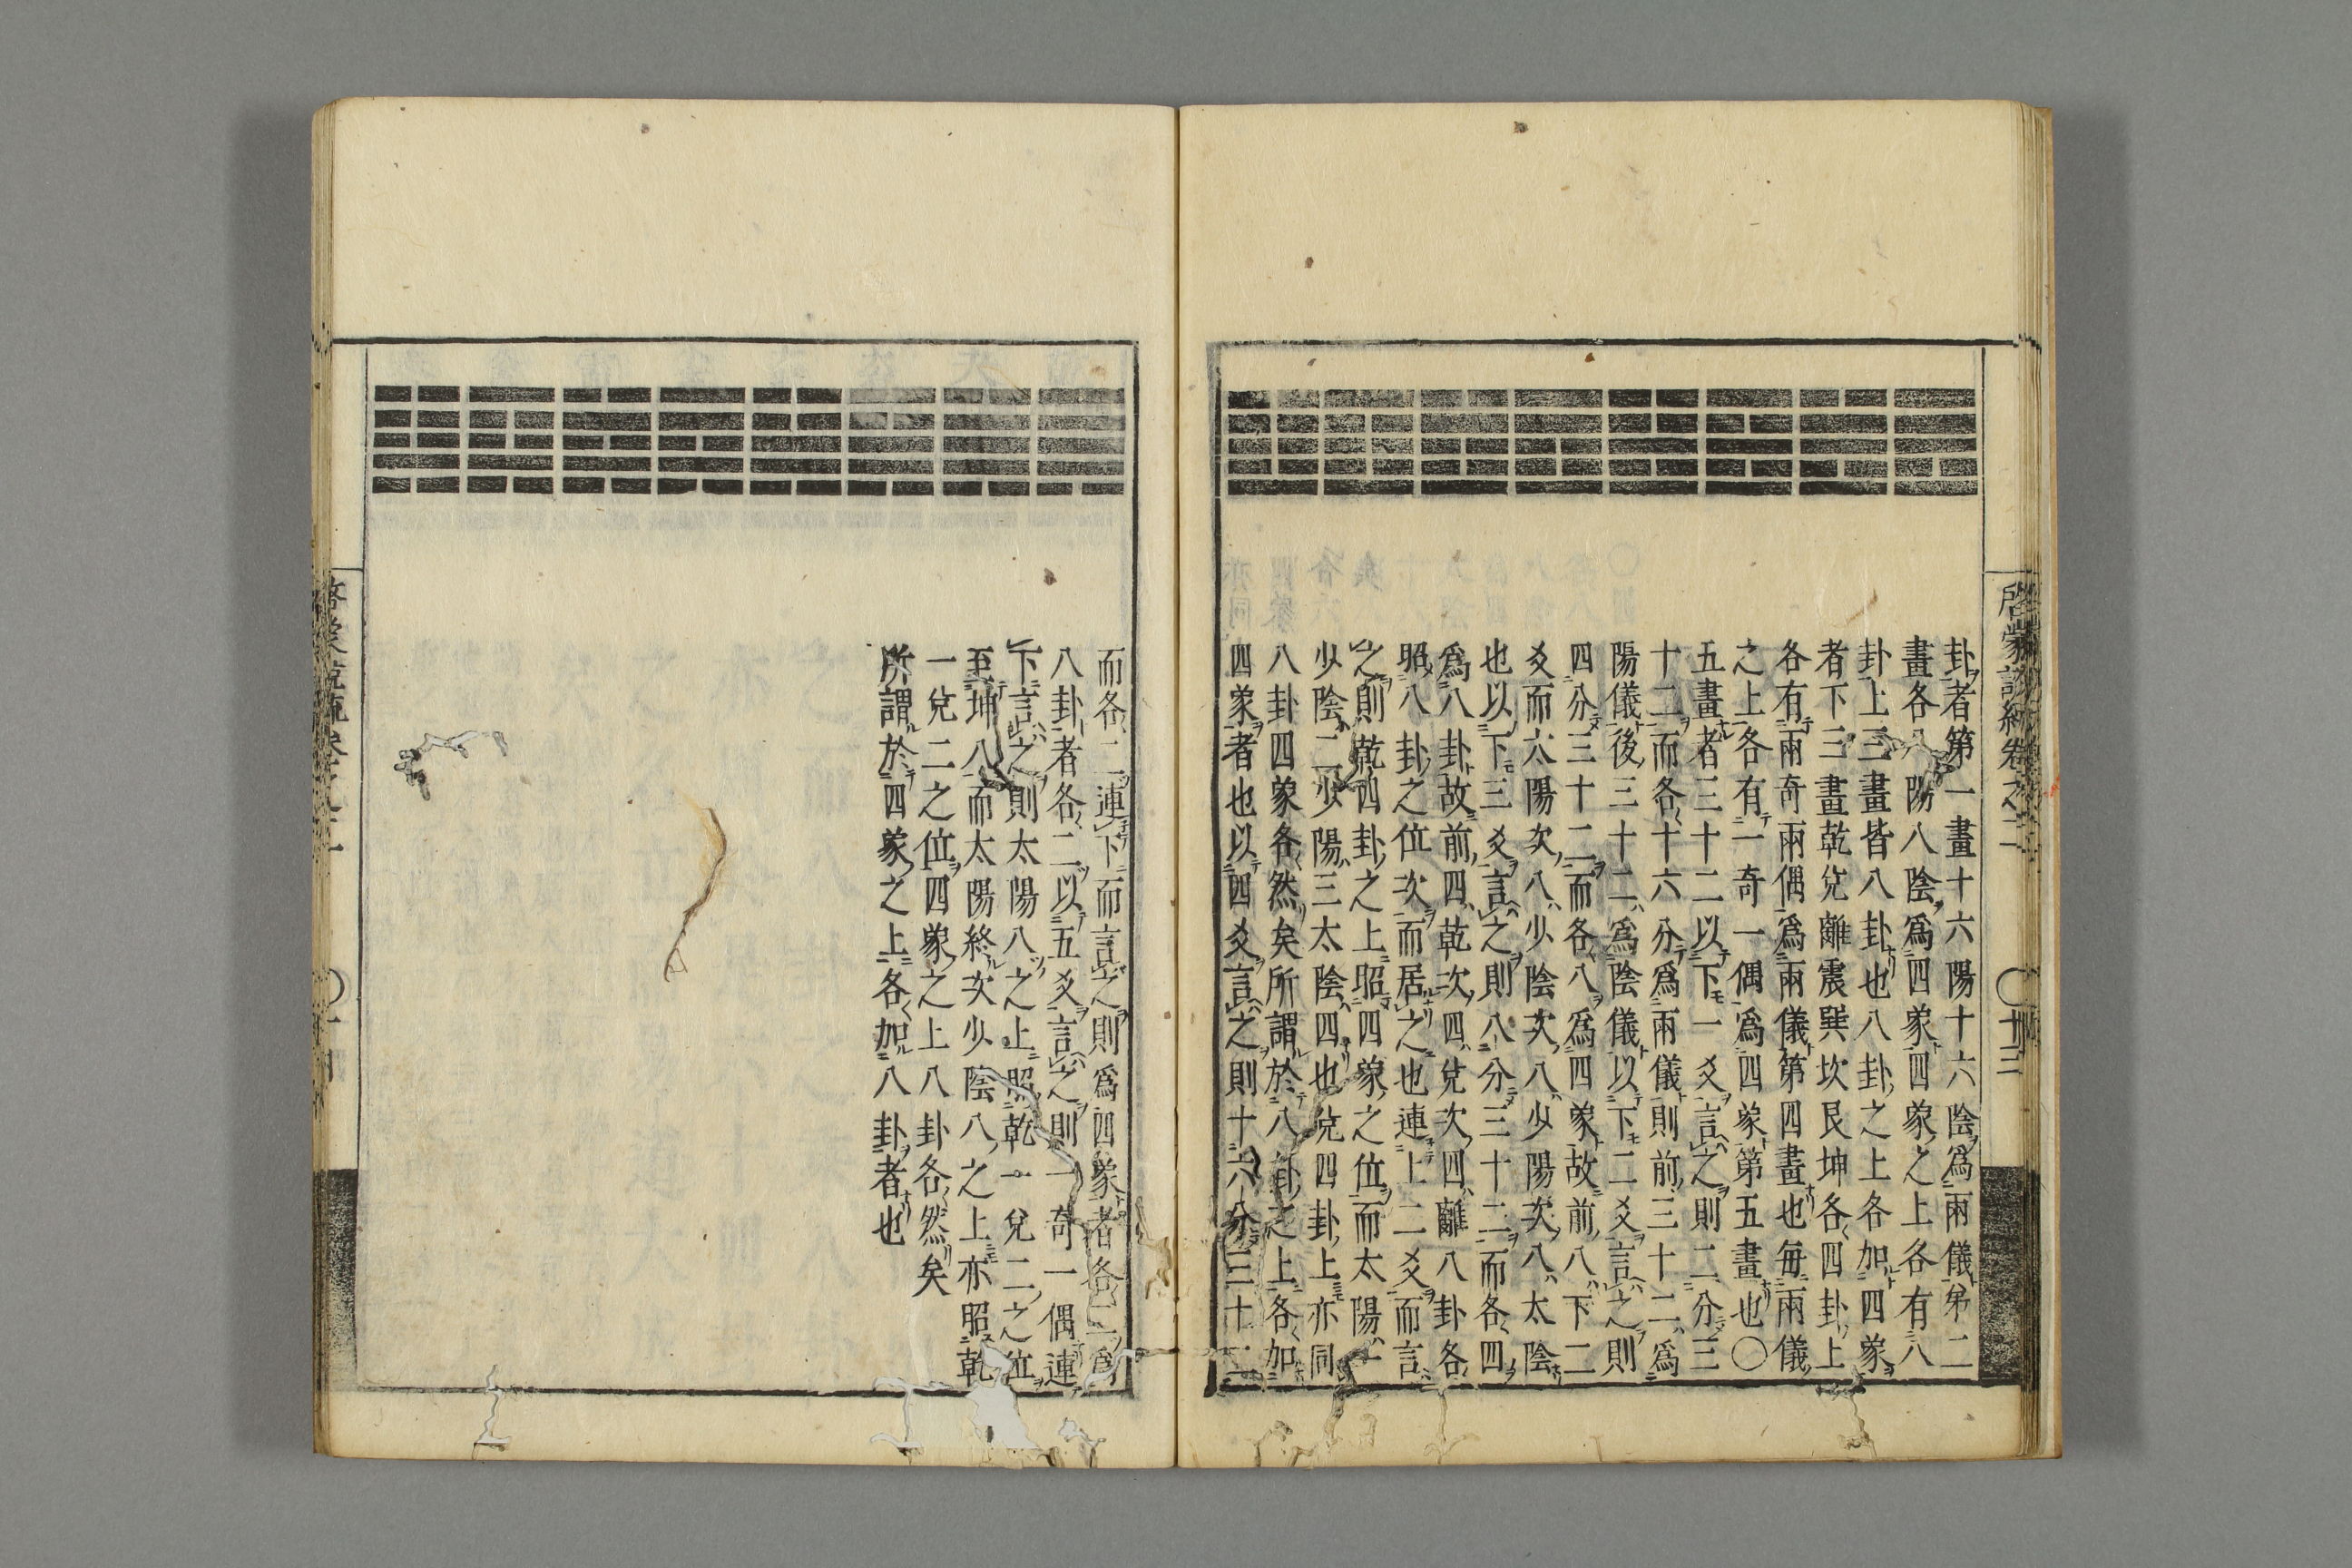 卦者第一畫十六陽十六陰爲兩儀第二
畫各八陽八陰爲四象四象之上各有八
卦上三畫皆八卦也八卦之上各加四象
者下三畫乾兌離震巽坎艮坤各四卦上
各有兩奇兩偶爲兩儀第四畫也每兩儀
之上各有一奇一偶爲四象第五畫也〇
五畫者三十二以下一爻言之則二分三
十二而各十六分爲兩儀則前三十二爲
陽儀後三十二爲陰儀以下二爻言之則
四分三十二而各八爲四象故前八下二
爻而太陽次八少陰次八少陽次八太陰
也以下三爻言之則八分三十二而各四
爲八卦故前四乾次四兌次四離八卦各
照八卦之位次而居之也連上二爻而言
之則乾四卦之上照四象之位而太陽一
少陰二少陽三太陰四也兌四卦上亦同
八卦四象各然矣所謂於八卦之上各加
四象者也以四爻言之則十六分三十二
啓蒙
卷之二
〇十三
而各二連下而言之則爲四象者各二爲
八卦者各二以五爻言之則一奇一偶連
下言之則太陽八之上照乾一兌二之位
至坤八而太陽終次少陰八之上亦照乾
一兌二之位四象之上八卦各然矣
所謂於四象之上各加八卦者也